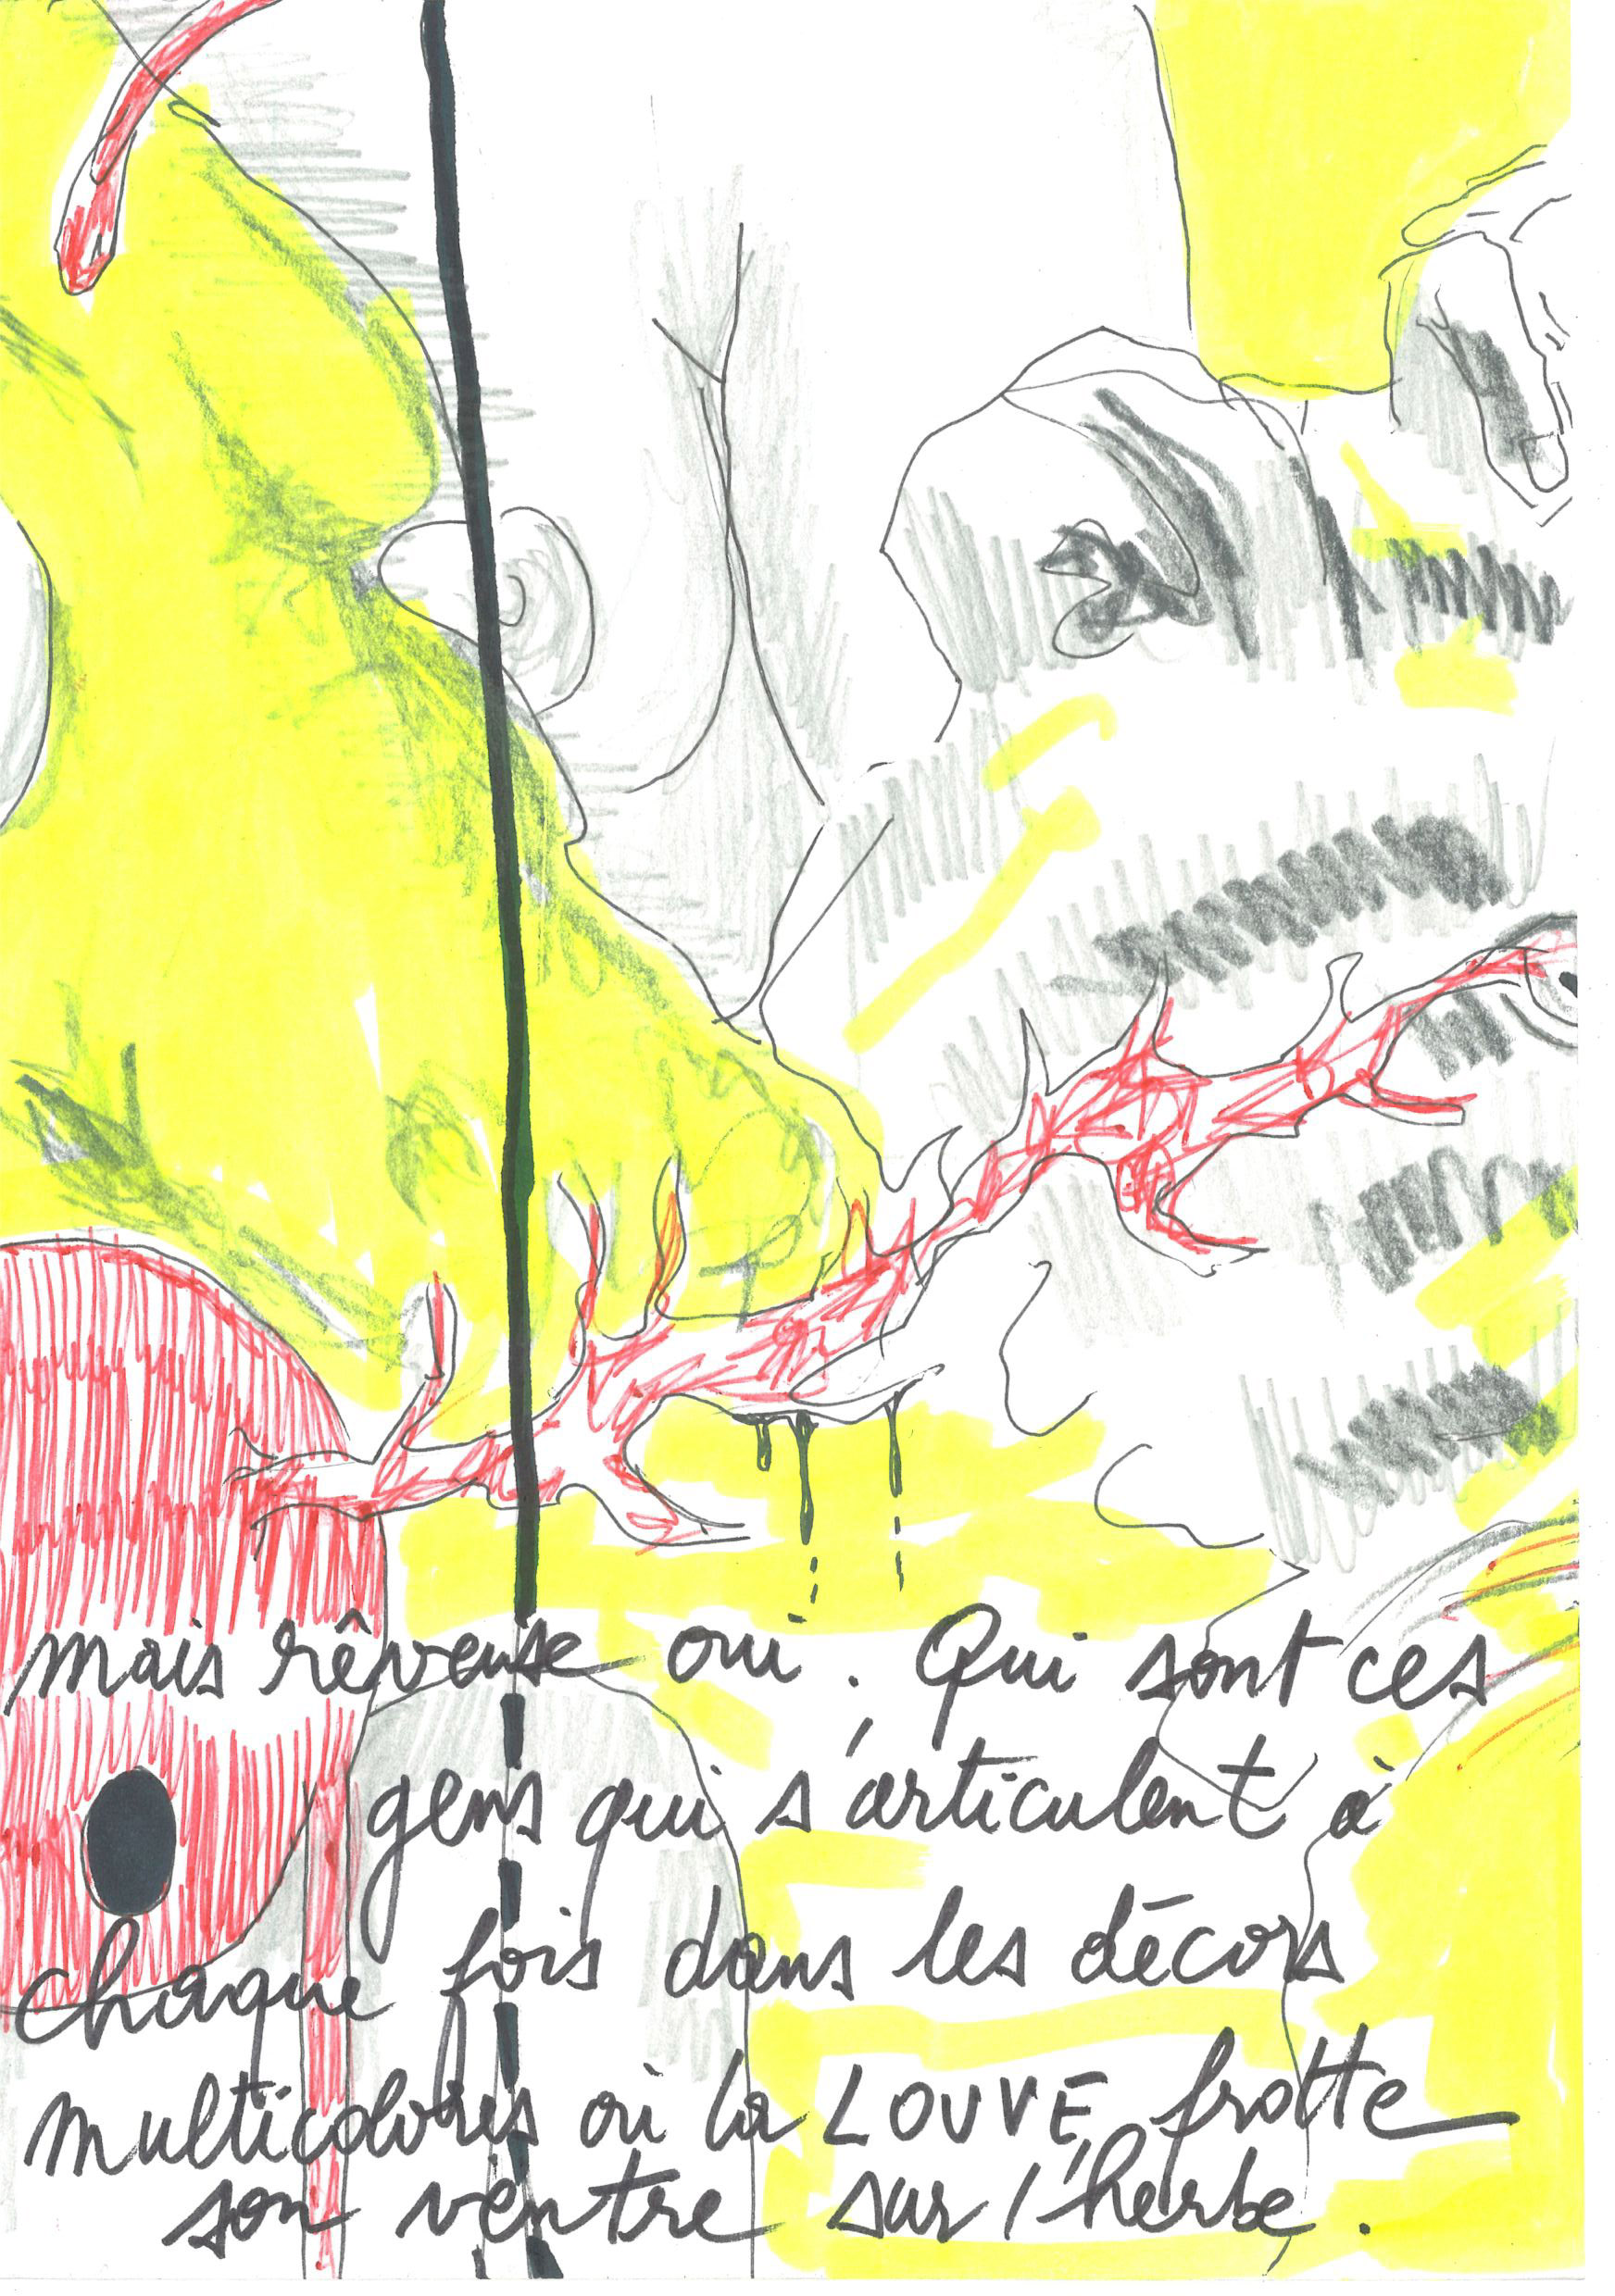 mais rêveuse oui. Qui sont ces
gens qui s'articulent à
chaque fois dans les décors
multicolores où la LOUVE frotte
son ventre sur l'herbe.